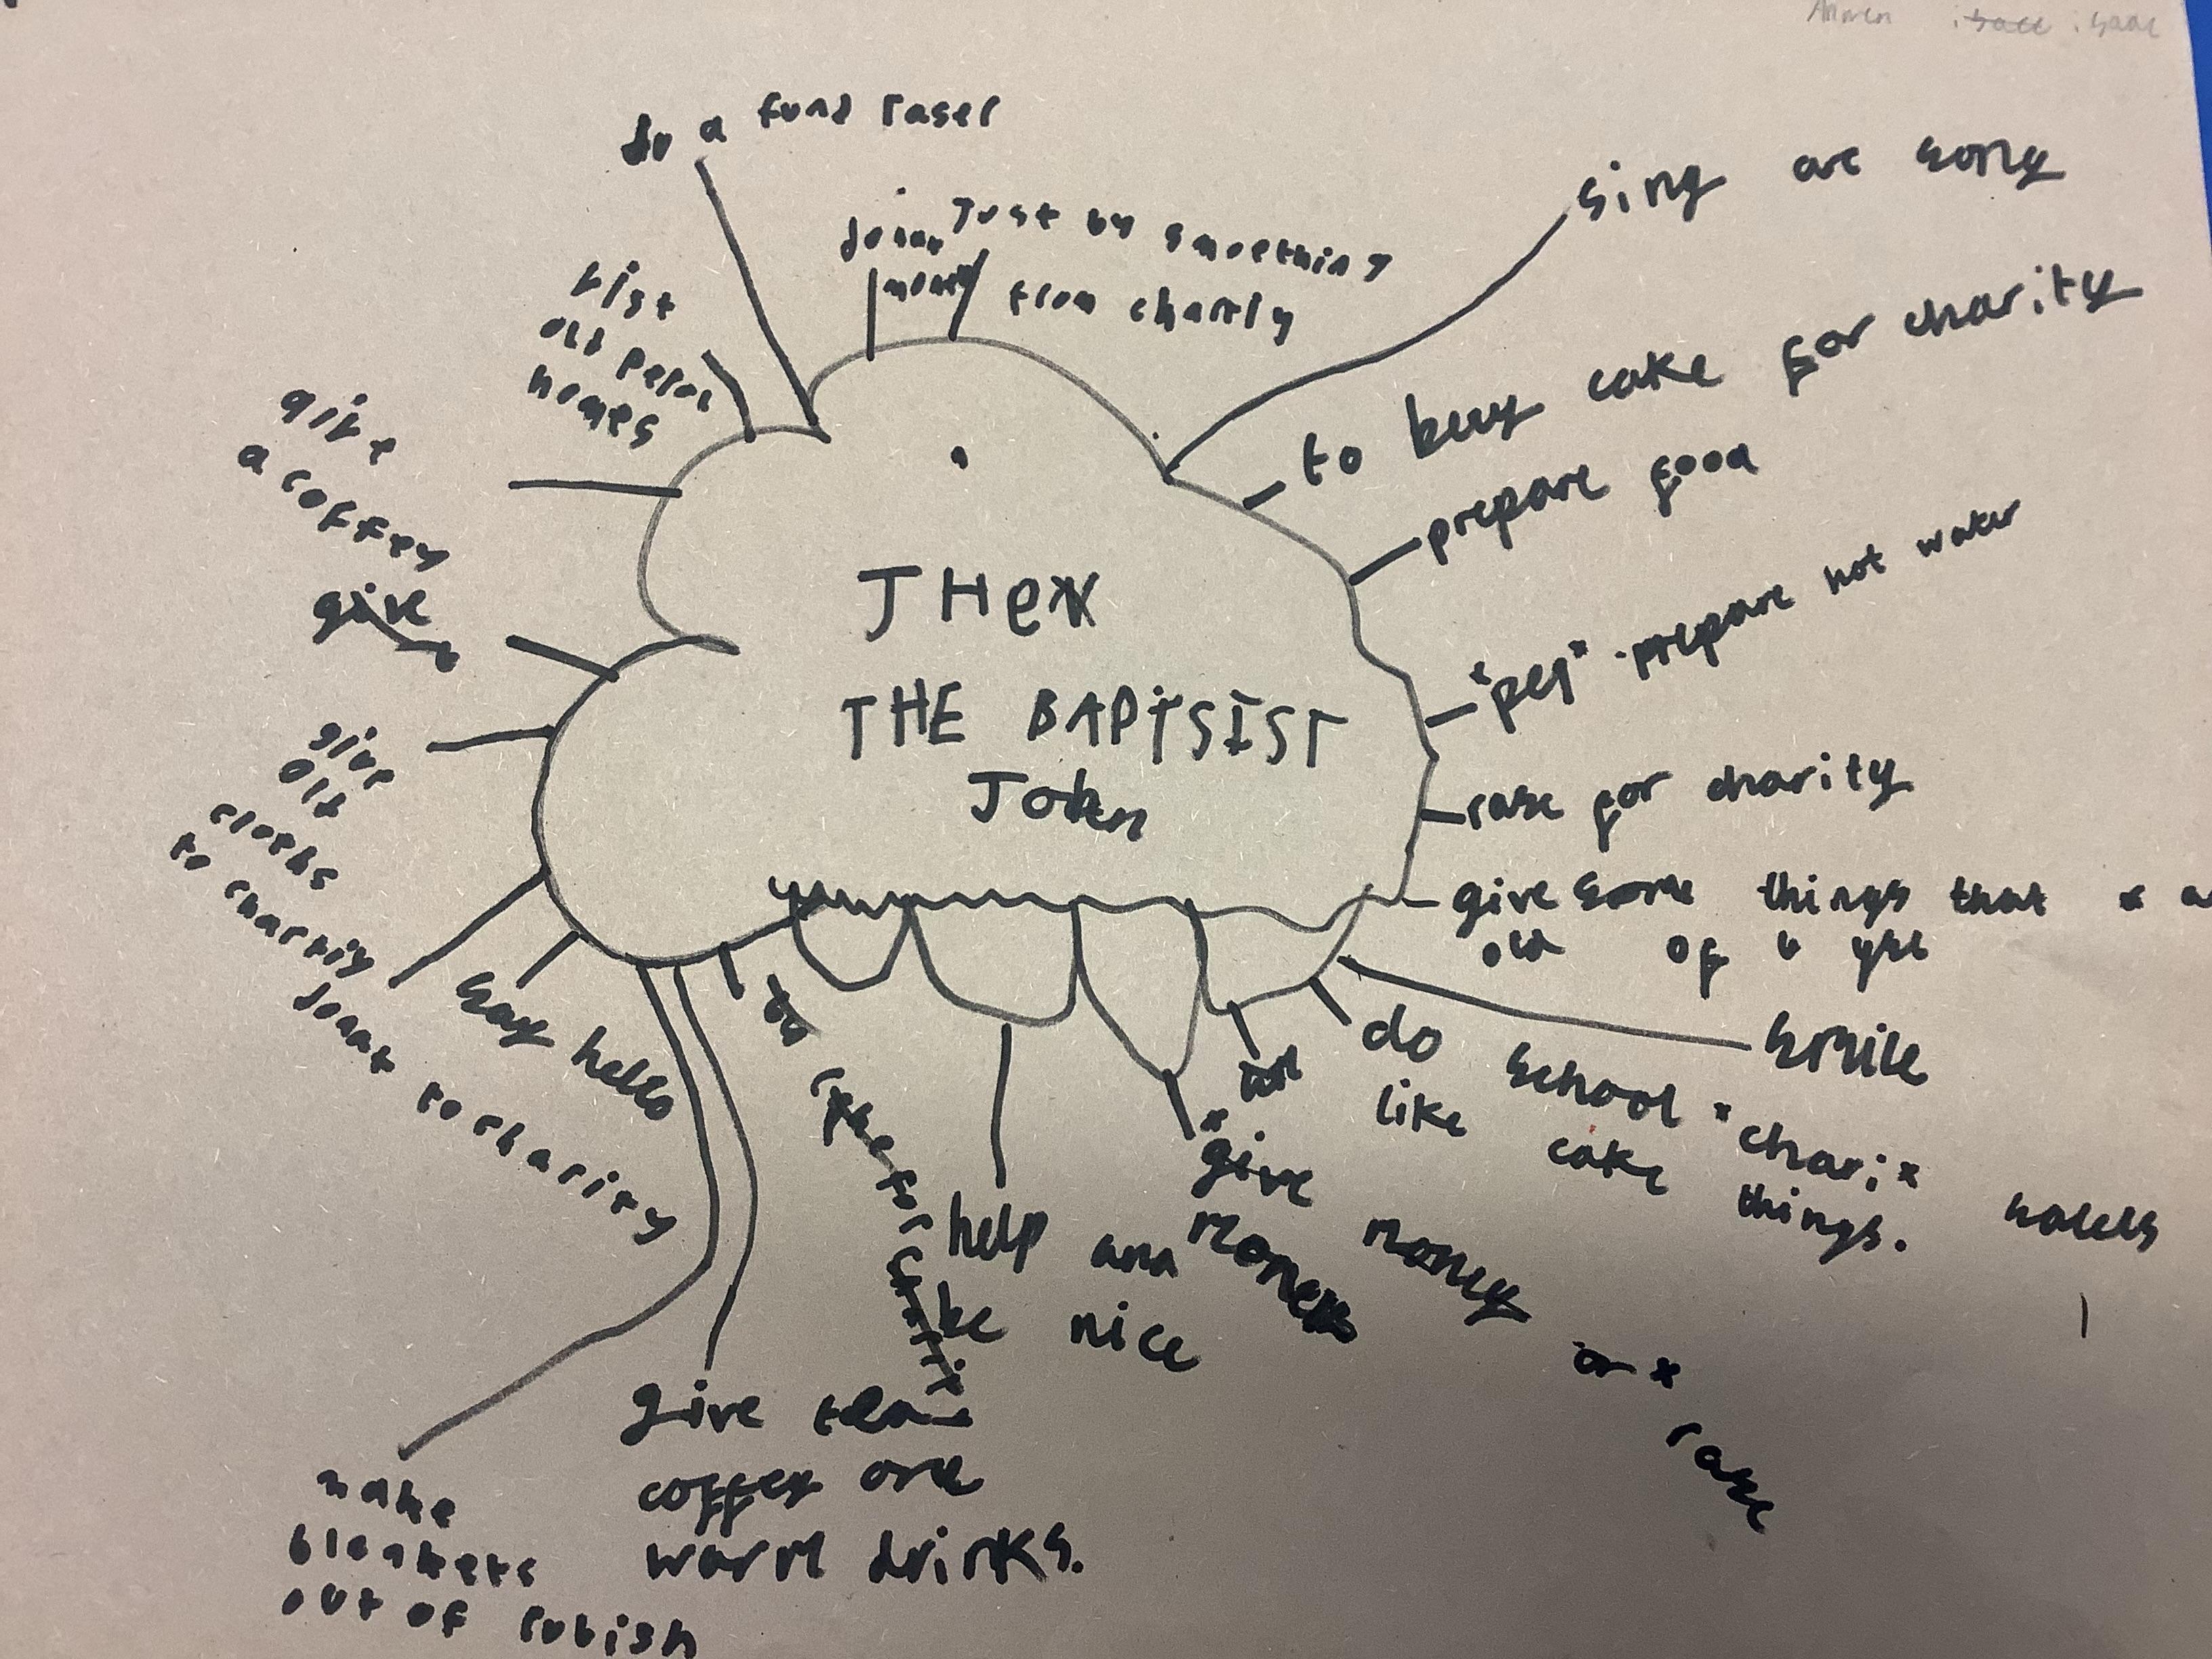 isaac
do a fund raser
Just by smoething
from charity
money
sing are song
to buy cake for charity
prepare food
prepare hot water
rase for charity
give some things that
old of
smile
do school chari
like cake things.
salels
give money
or
rase
money
help and
be nice
give tea
coffey ore
warm drinks.
make
blankets
out of rubish
say hello
donat to charity
give
old
cloths
to chartiy
give
gift
a coffey
vist
old
homes
JHEN
THE BAPTSIST
John